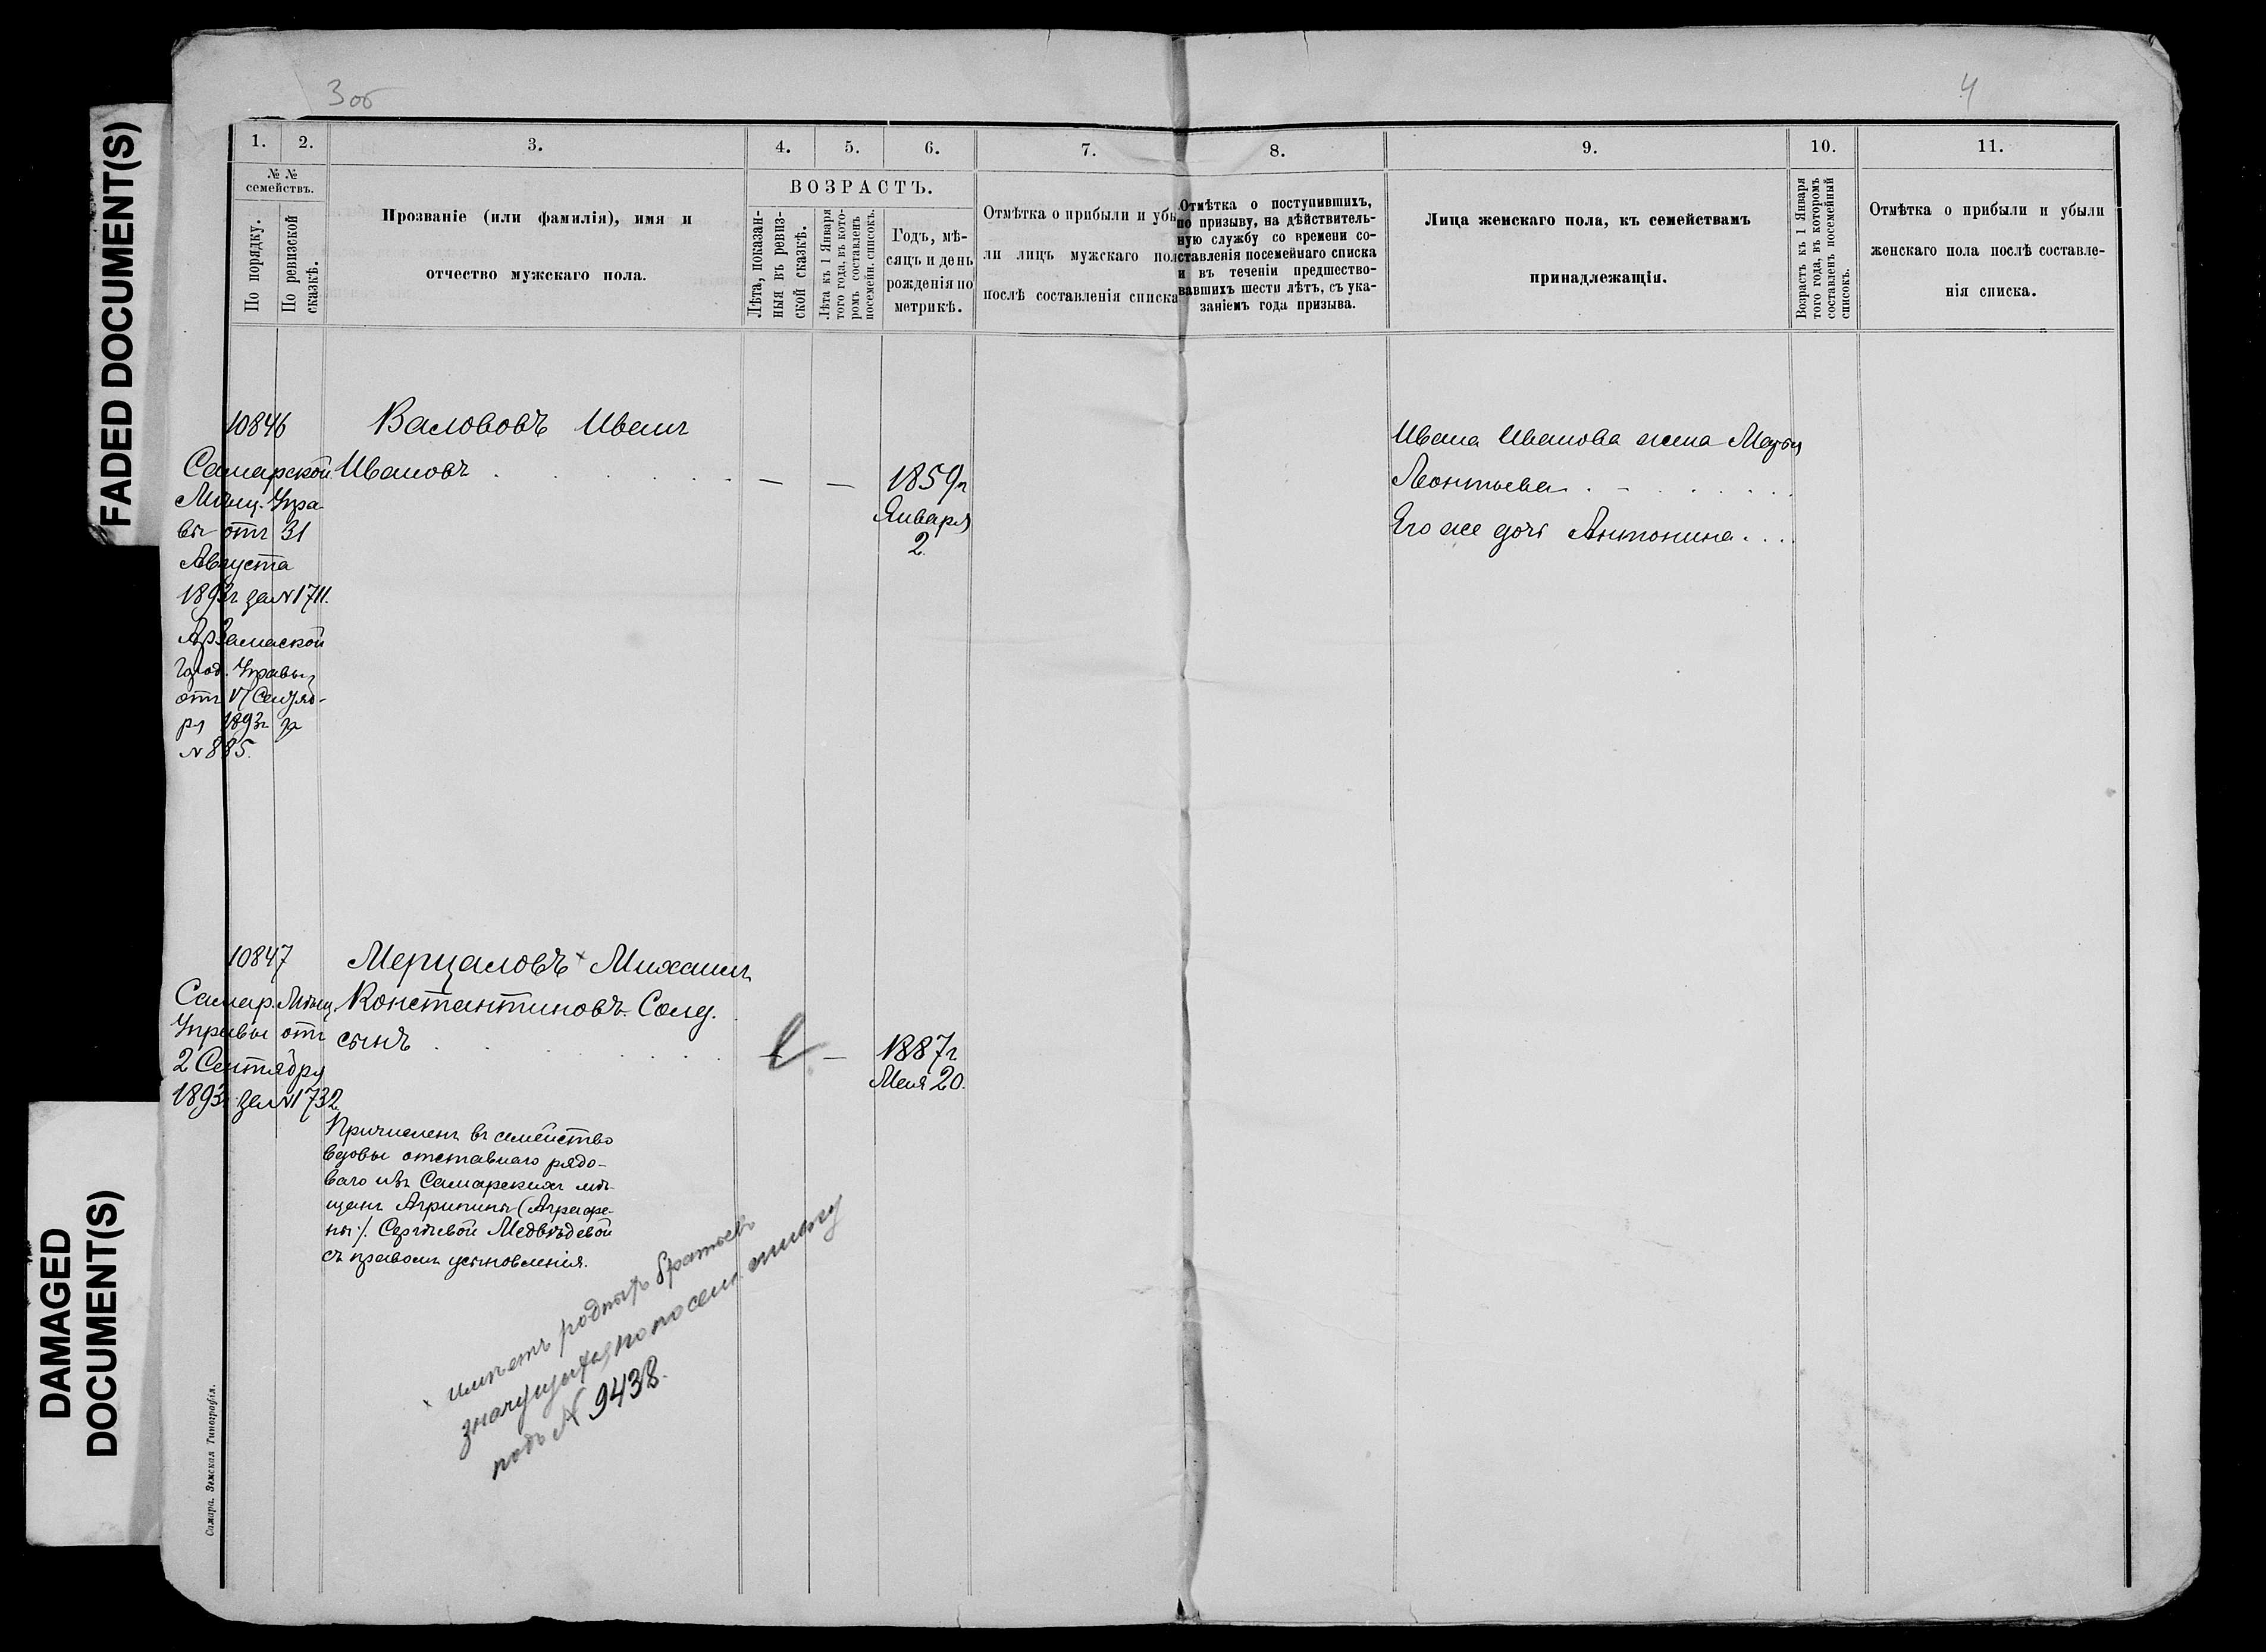 FADED DOCUMENT(S)
DAMAGED
DOCUMENT(S)
3 об
4
1.
2.
3.
4.
5.
6.
7.
8.
9.
10.
11.
№ №
семействъ.
По порядку.
По ревизской
сказкѣ.
Прозваніе (или фамилія), имя и
отчество мужскаго пола.
ВОЗРАСТЪ.
Лѣта, показан-
ныя въ ревиз-
ской сказкѣ.
Лѣта къ 1 Января
того года, въ кото-
ромъ составленъ
посемейн. списокъ.
Годъ, мѣ-
сяцъ и день
рожденія по
метрикѣ.
Отмѣтка о прибыли и убы
ли лицъ мужскаго пол
послѣ составленія списка
Отмѣтка о поступившихъ,
по призыву, на дѣйствитель-
ную службу со времени со-
ставленія посемейнаго списка
и въ теченіи предшество-
вавшихъ шести лѣтъ, съ ука-
заніемъ года призыва.
Лица женскаго пола, къ семействамъ
принадлежащія.
Возрастъ къ 1 Января
того года, въ которомъ
составленъ посемейный
списокъ.
Отмѣтка о прибыли и убыли
женскаго пола послѣ составле-
нія списка.
10846
Самарской
Мѣщ. Упра
вы отъ 31
Августа
1893г за №1711.
Арзамаской
Город. Управы
отъ 17 Сентяб-
ря 1893г за
№ 885.
Валововъ Иванъ
Ивановъ . . . . . . — —
1859г
Января
2.
Ивана Иванова жена Марья
Леонтьева . - . . . . .
Его же дочь Антонина . . .
10847
Самар. Мѣщ.
Управы отъ
2 Сентября
1893г за №1732
Мерцаловъ × Михаилъ
Константиновъ. Солд.
сынъ . . . . . . . — —
1887г
Мая 20.
Причисленъ въ семейство
вдовы отставнаго рядо-
ваго изъ Самарскихъ мѣ-
щанъ Агрипины (Аграфе-
ны). Сергѣевой Медвѣдевой
съ правомъ усыновленія.
× имѣетъ родныхъ братьевъ
значущихся по посем. списку
подъ № 9438.
Самара. Земская Типографія.